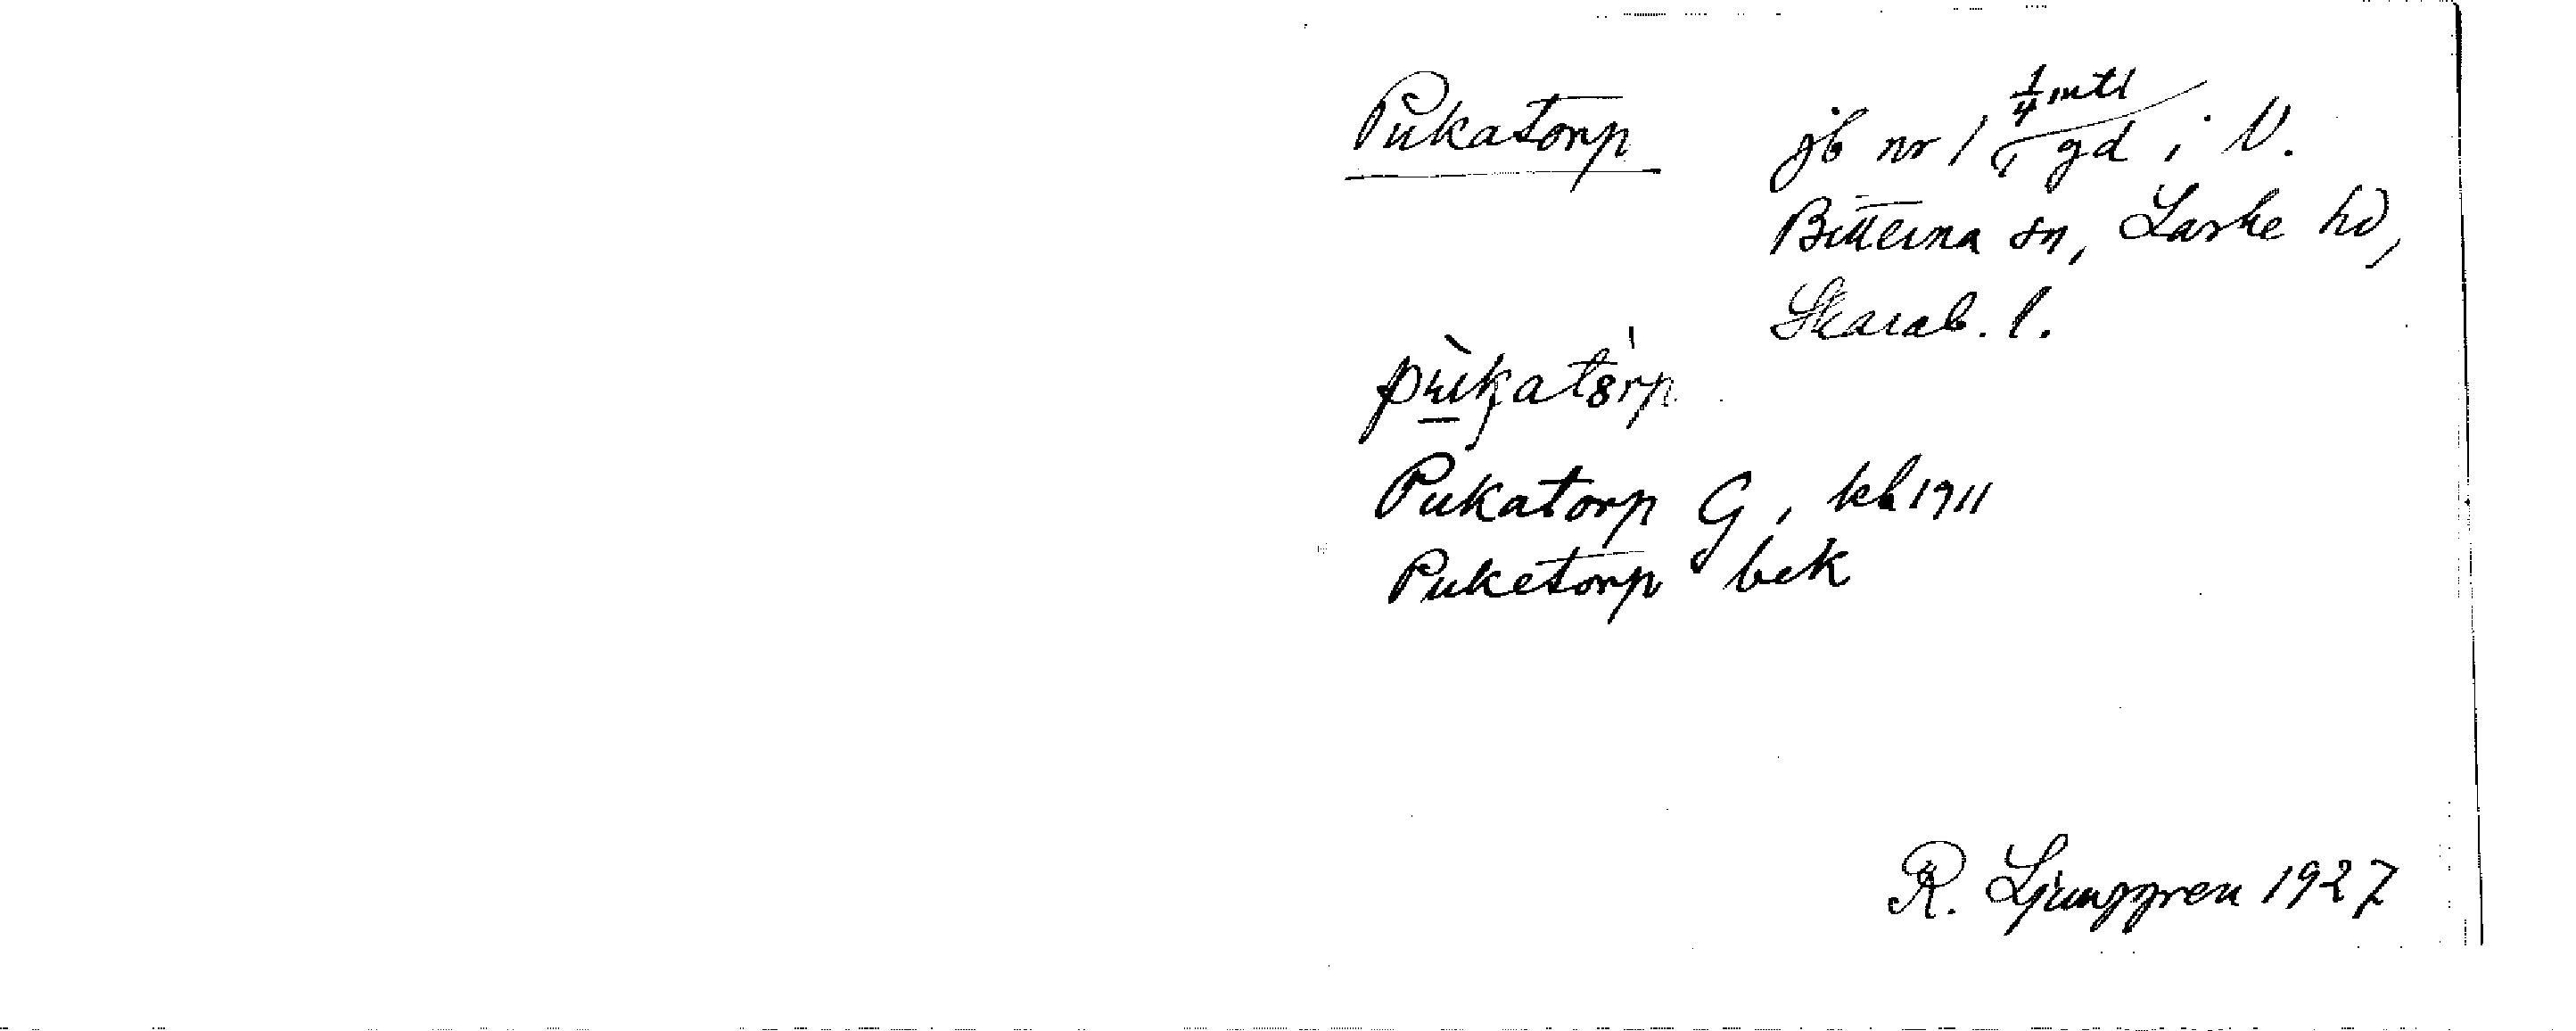 Pukatorp jb nr 1 1/4 mtl gd i N.
Bitterna sn, Laske hd,
Skarab. l.
pùkatórp
Pukatorp G, kb 1911
Puketorp bek
R. Ljunggren 1927